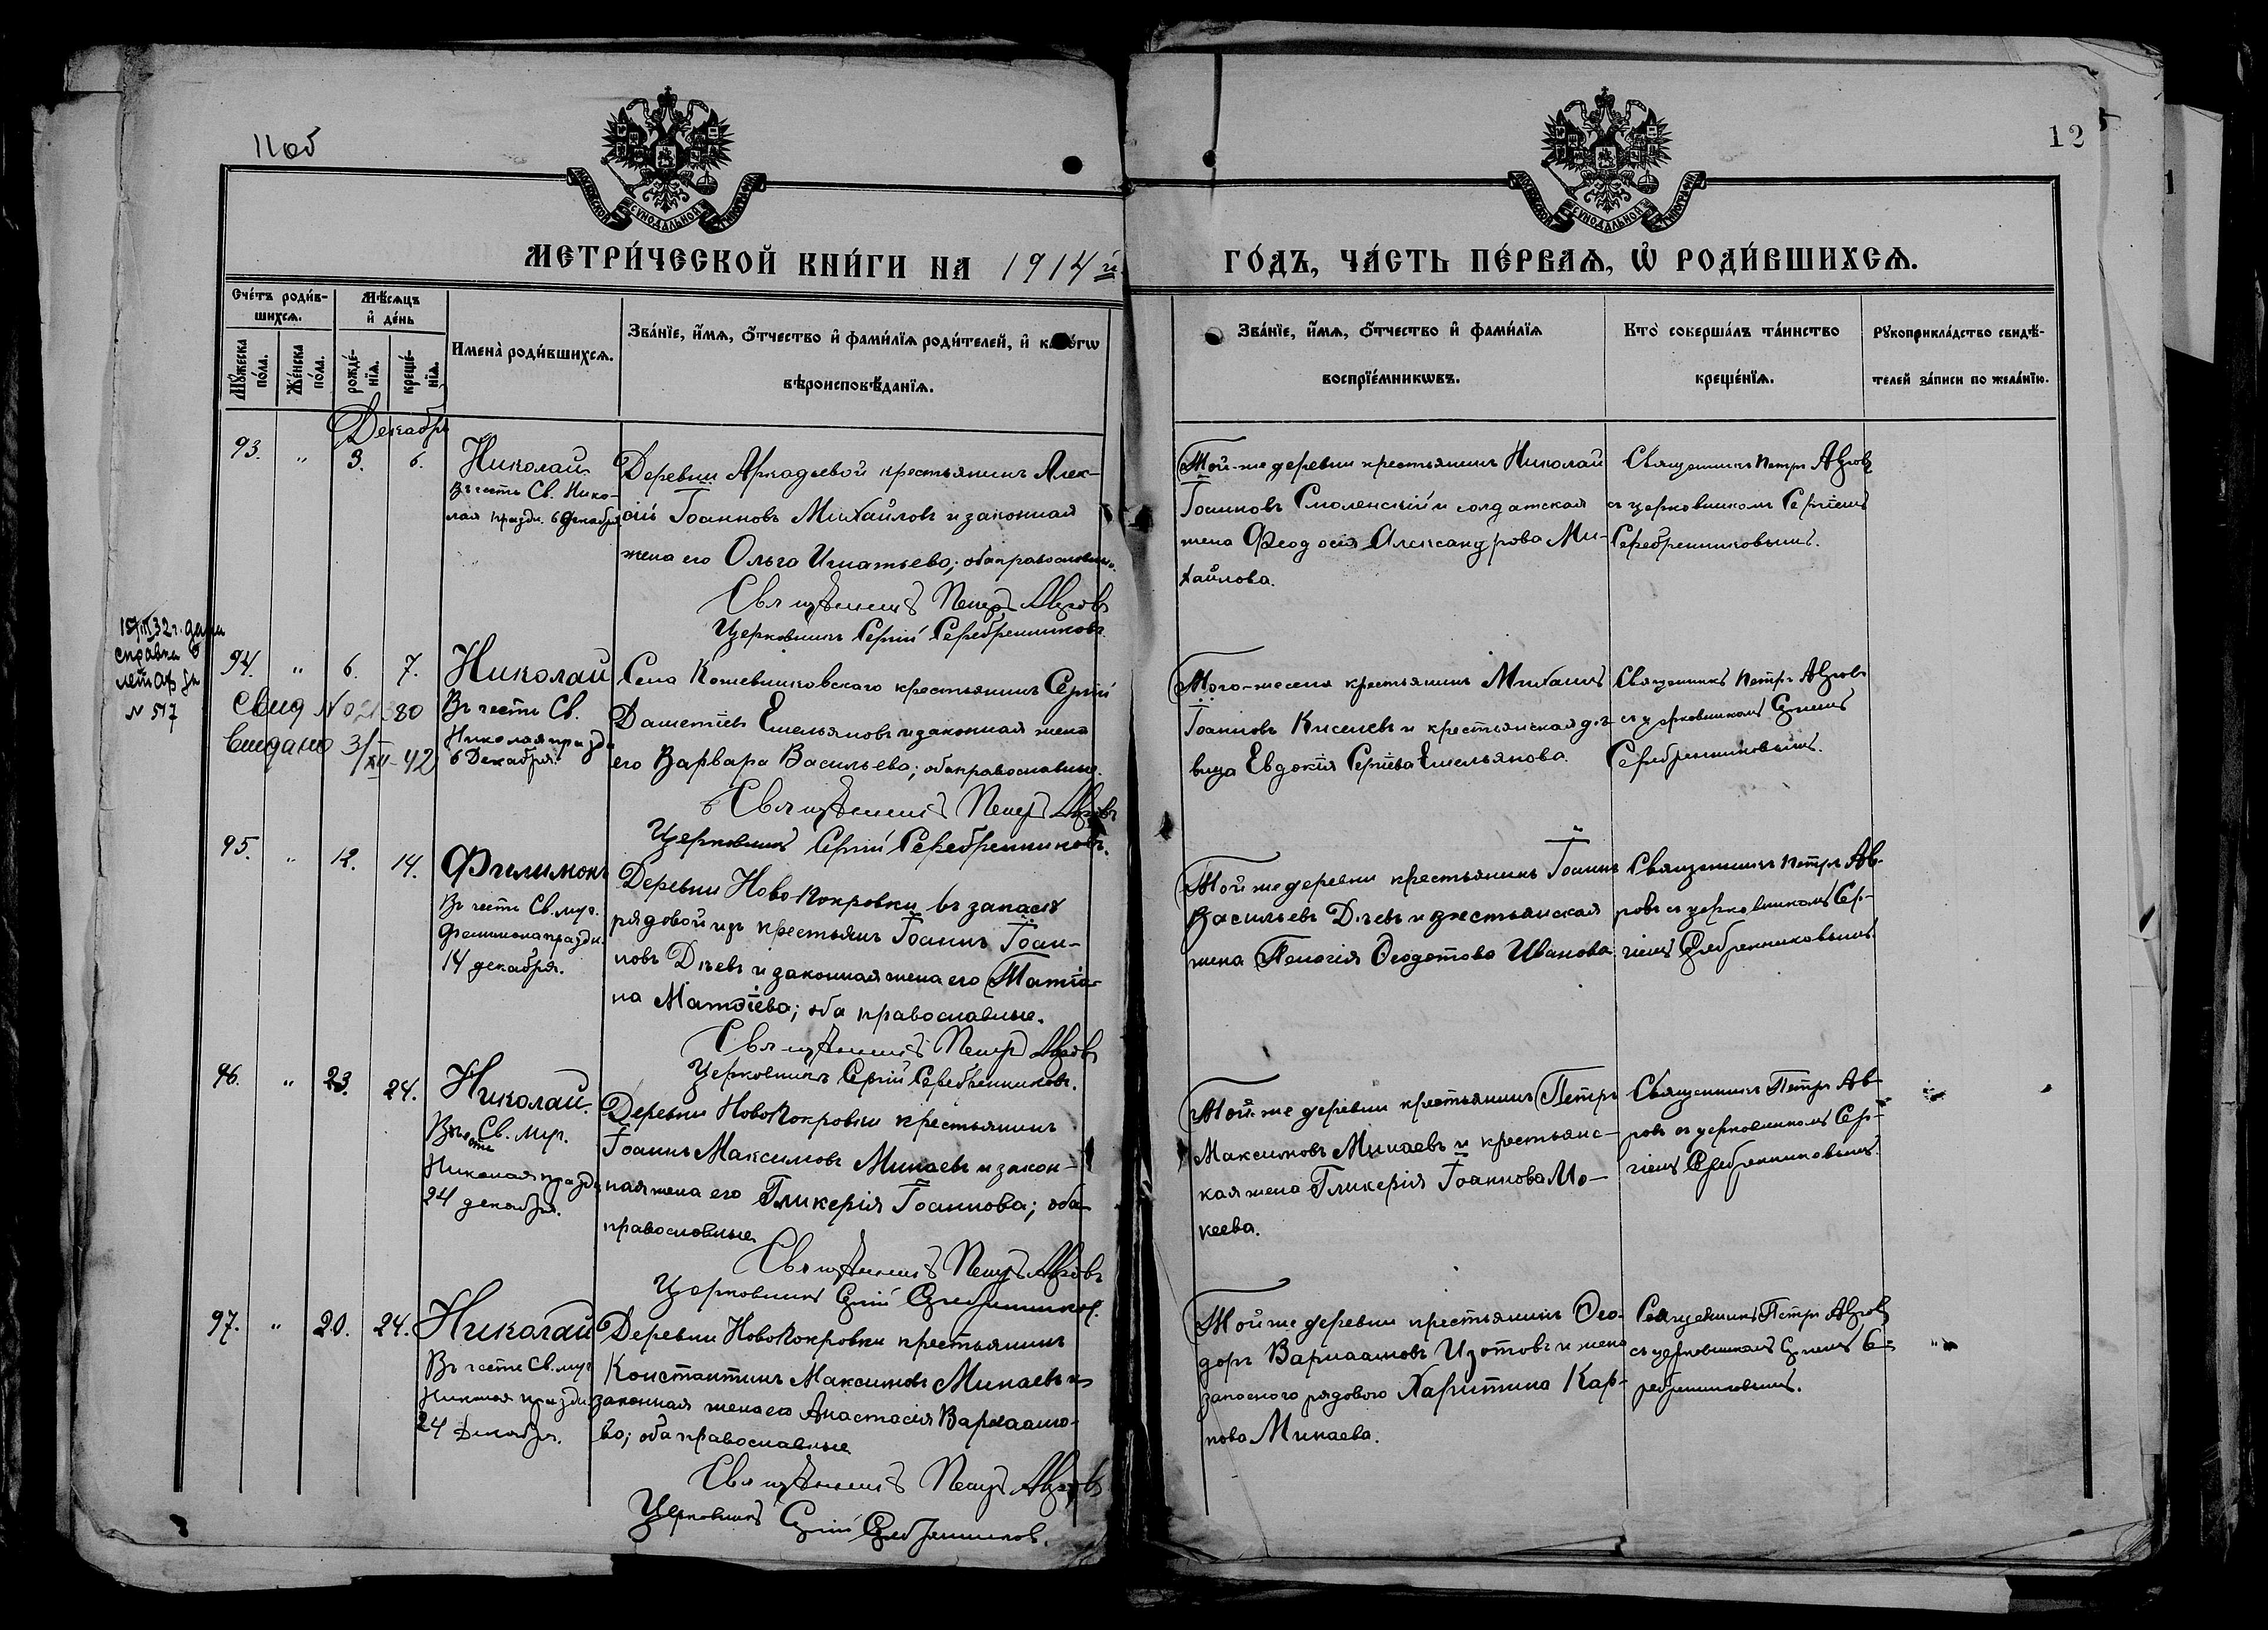 11об
12
МОСКОВСКОЙ СѴНОДАЛЬНОЙ ТИПОГРАФІИ
МОСКОВСКОЙ СѴНОДАЛЬНОЙ ТИПОГРАФІИ
МЕТРИ́ЧЕСКОЙ КНИ́ГИ НА 1914 й
ГО́ДЪ, ЧА́СТЬ ПЕ́РВАѦ, Ѽ РОДИ́ВШИХСѦ.
Сче́тъ роди́в-
шихсѧ.
Мѣ́сѧцъ
и҆ де́нь
Мꙋ́жеска
по́ла.
Же́нска
по́ла.
рожде́-
нїѧ.
креще́-
нїѧ.
Имена̀ роди́вшихсѧ.
Зва́нїе, и҆́мѧ, ѻ҆́тчество и҆ фами́лїѧ роди́телей, и҆ како́гѡ
вѣроисповѣ́данїѧ.
Зва́нїе, и҆́мѧ, ѻ҆́тчество и҆ фами́лїѧ
воспрїе́мникѡвъ.
Кто̀ соверша́лъ та́инство
креще́нїѧ.
Рꙋкоприкла́дство свидѣ́-
телей за́писи по жела́нїю.
Декабрь
93. " 3. 6.
Николай
Въ честь Св. Нико-
лая празд. 6 декабря
Деревни Аркадьевой крестьянинъ Алек-
сѣй Іоанновъ Михайловъ и законная
жена его Ольга Игнатьева; оба православные.
Священникъ Петръ Авровъ
Церковникъ Сергій Серебренниковъ
Той-же деревни крестьянинъ Николай
Іоанновъ Смоленскій и солдатская
жена Феодосія Александрова Ми-
хайлова.
Священникъ Петръ Авровъ
съ церковникомъ Сергіемъ
Серебренниковымъ.
справка
N 517
94. " 6. 7.
Свид N
80
выдано 3/XII-42
Николай
Въ честь Св.
Николая празд
6 Декабря.
Села Кожевниковскаго крестьянинъ Сергій
Даметіевъ Емельяновъ и законная жена
его Варвара Васильева; оба православные.
Священникъ Петръ Авровъ
Церковникъ Сергій Серебренниковъ.
Того-же села крестьянинъ Михаилъ
Іоанновъ Киселевъ и крестьянская дѣ-
вица Евдокія Сергіева Емельянова.
Священникъ Петръ Авровъ
съ церковникомъ Сергіемъ
Серебренниковымъ.
95. " 12. 14.
Филимонъ
Въ честь Св. муч.
Филимона праздн.
14 декабря.
Деревни НовоПокровки, въ запасѣ
рядовой изъ крестьянъ Іоаннъ Іоан-
новъ Дѣевъ и законная жена его Татіа-
на Матѳіева; оба православные.
Священникъ Петръ Авровъ
Церковникъ Сергій Серебренниковъ.
Той же деревни крестьянинъ Іоаннъ
Васильевъ Дѣевъ и крестьянская
жена Пелагія Ѳеодотова Иванова.
Священникъ Петръ Ав-
ровъ съ церковникомъ Сер-
гіемъ Серебренниковымъ.
96. " 23. 24.
Николай.
Въ честь Св. муч.
Николая празд
24 декабря.
Деревни НовоПокровки крестьянинъ
Іоаннъ Максимовъ Минаевъ и закон-
ная жена его Гликерія Іоаннова; оба
православные.
Священникъ Петръ Авровъ
Церковникъ Сергій Серебренниковъ.
Той-же деревни крестьянинъ Петръ
Максимовъ Минаевъ и крестьянс-
кая жена Гликерія Іоаннова Мо-
кеева.
Священникъ Петръ Ав-
ровъ съ церковникомъ Сер-
гіемъ Серебренниковымъ.
97. " 20. 24.
Николай
Въ честь Св. муч
Николая праздн.
24 Декабря.
Деревни НовоПокровки крестьянинъ
Константинъ Максимовъ Минаевъ и
законная жена его Анастасія Варлаамо-
ва; оба православные
Священникъ Петръ Авровъ
Церковникъ Сергій Серебренниковъ.
Той же деревни крестьянинъ Ѳео-
доръ Варлаамовъ Изотовъ и жена
запаснаго рядового Харитина Кар-
пова Минаева.
Священникъ Петръ Авровъ
съ церковникомъ Сергіемъ Се-
ребренниковымъ.